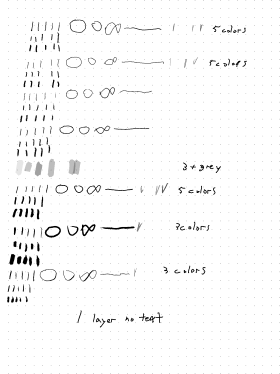 5 colors
5 colors
3 + grey
5 colors
3 colors
3 colors
1 layer no text